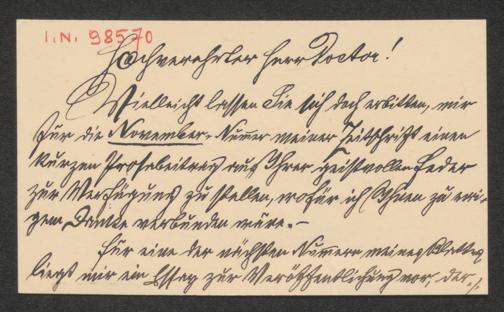 I.N. 98570
Hochverehrter Herr Doctor!
Vielleicht lassen Sie sich doch erbitten, mir
für die November-Nummer meiner Zeitschrift einen
kurzen Prosabeitrag aus Ihrer geistvollen Feder
zur Verfügung zu stellen, wofür ich Ihnen zu eini-
gem Danke verbunden wäre. –
Für eine der nächsten Nummern meines Blattes
liegt mir ein Essay zur Veröffentlichung vor, der